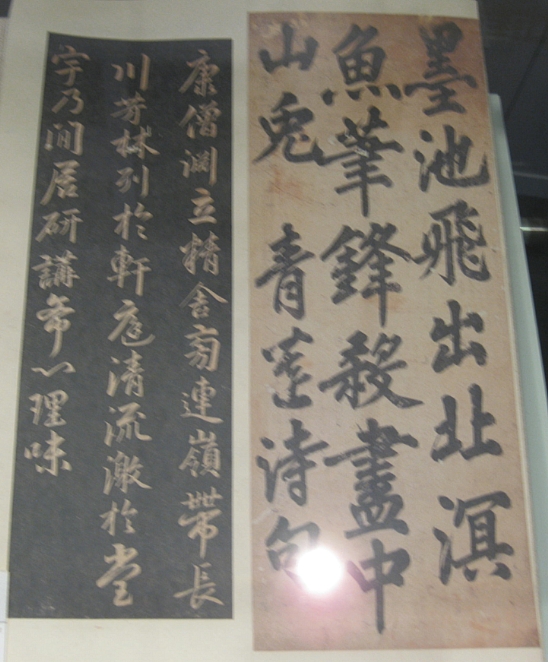 墨池飛出北溟
魚筆鋒殺盡中
山兔 青蓮詩句
康僧淵立精舍旁連嶺帶長
川芳林列於軒庭清流激於堂
宇乃閒居研講希心理味